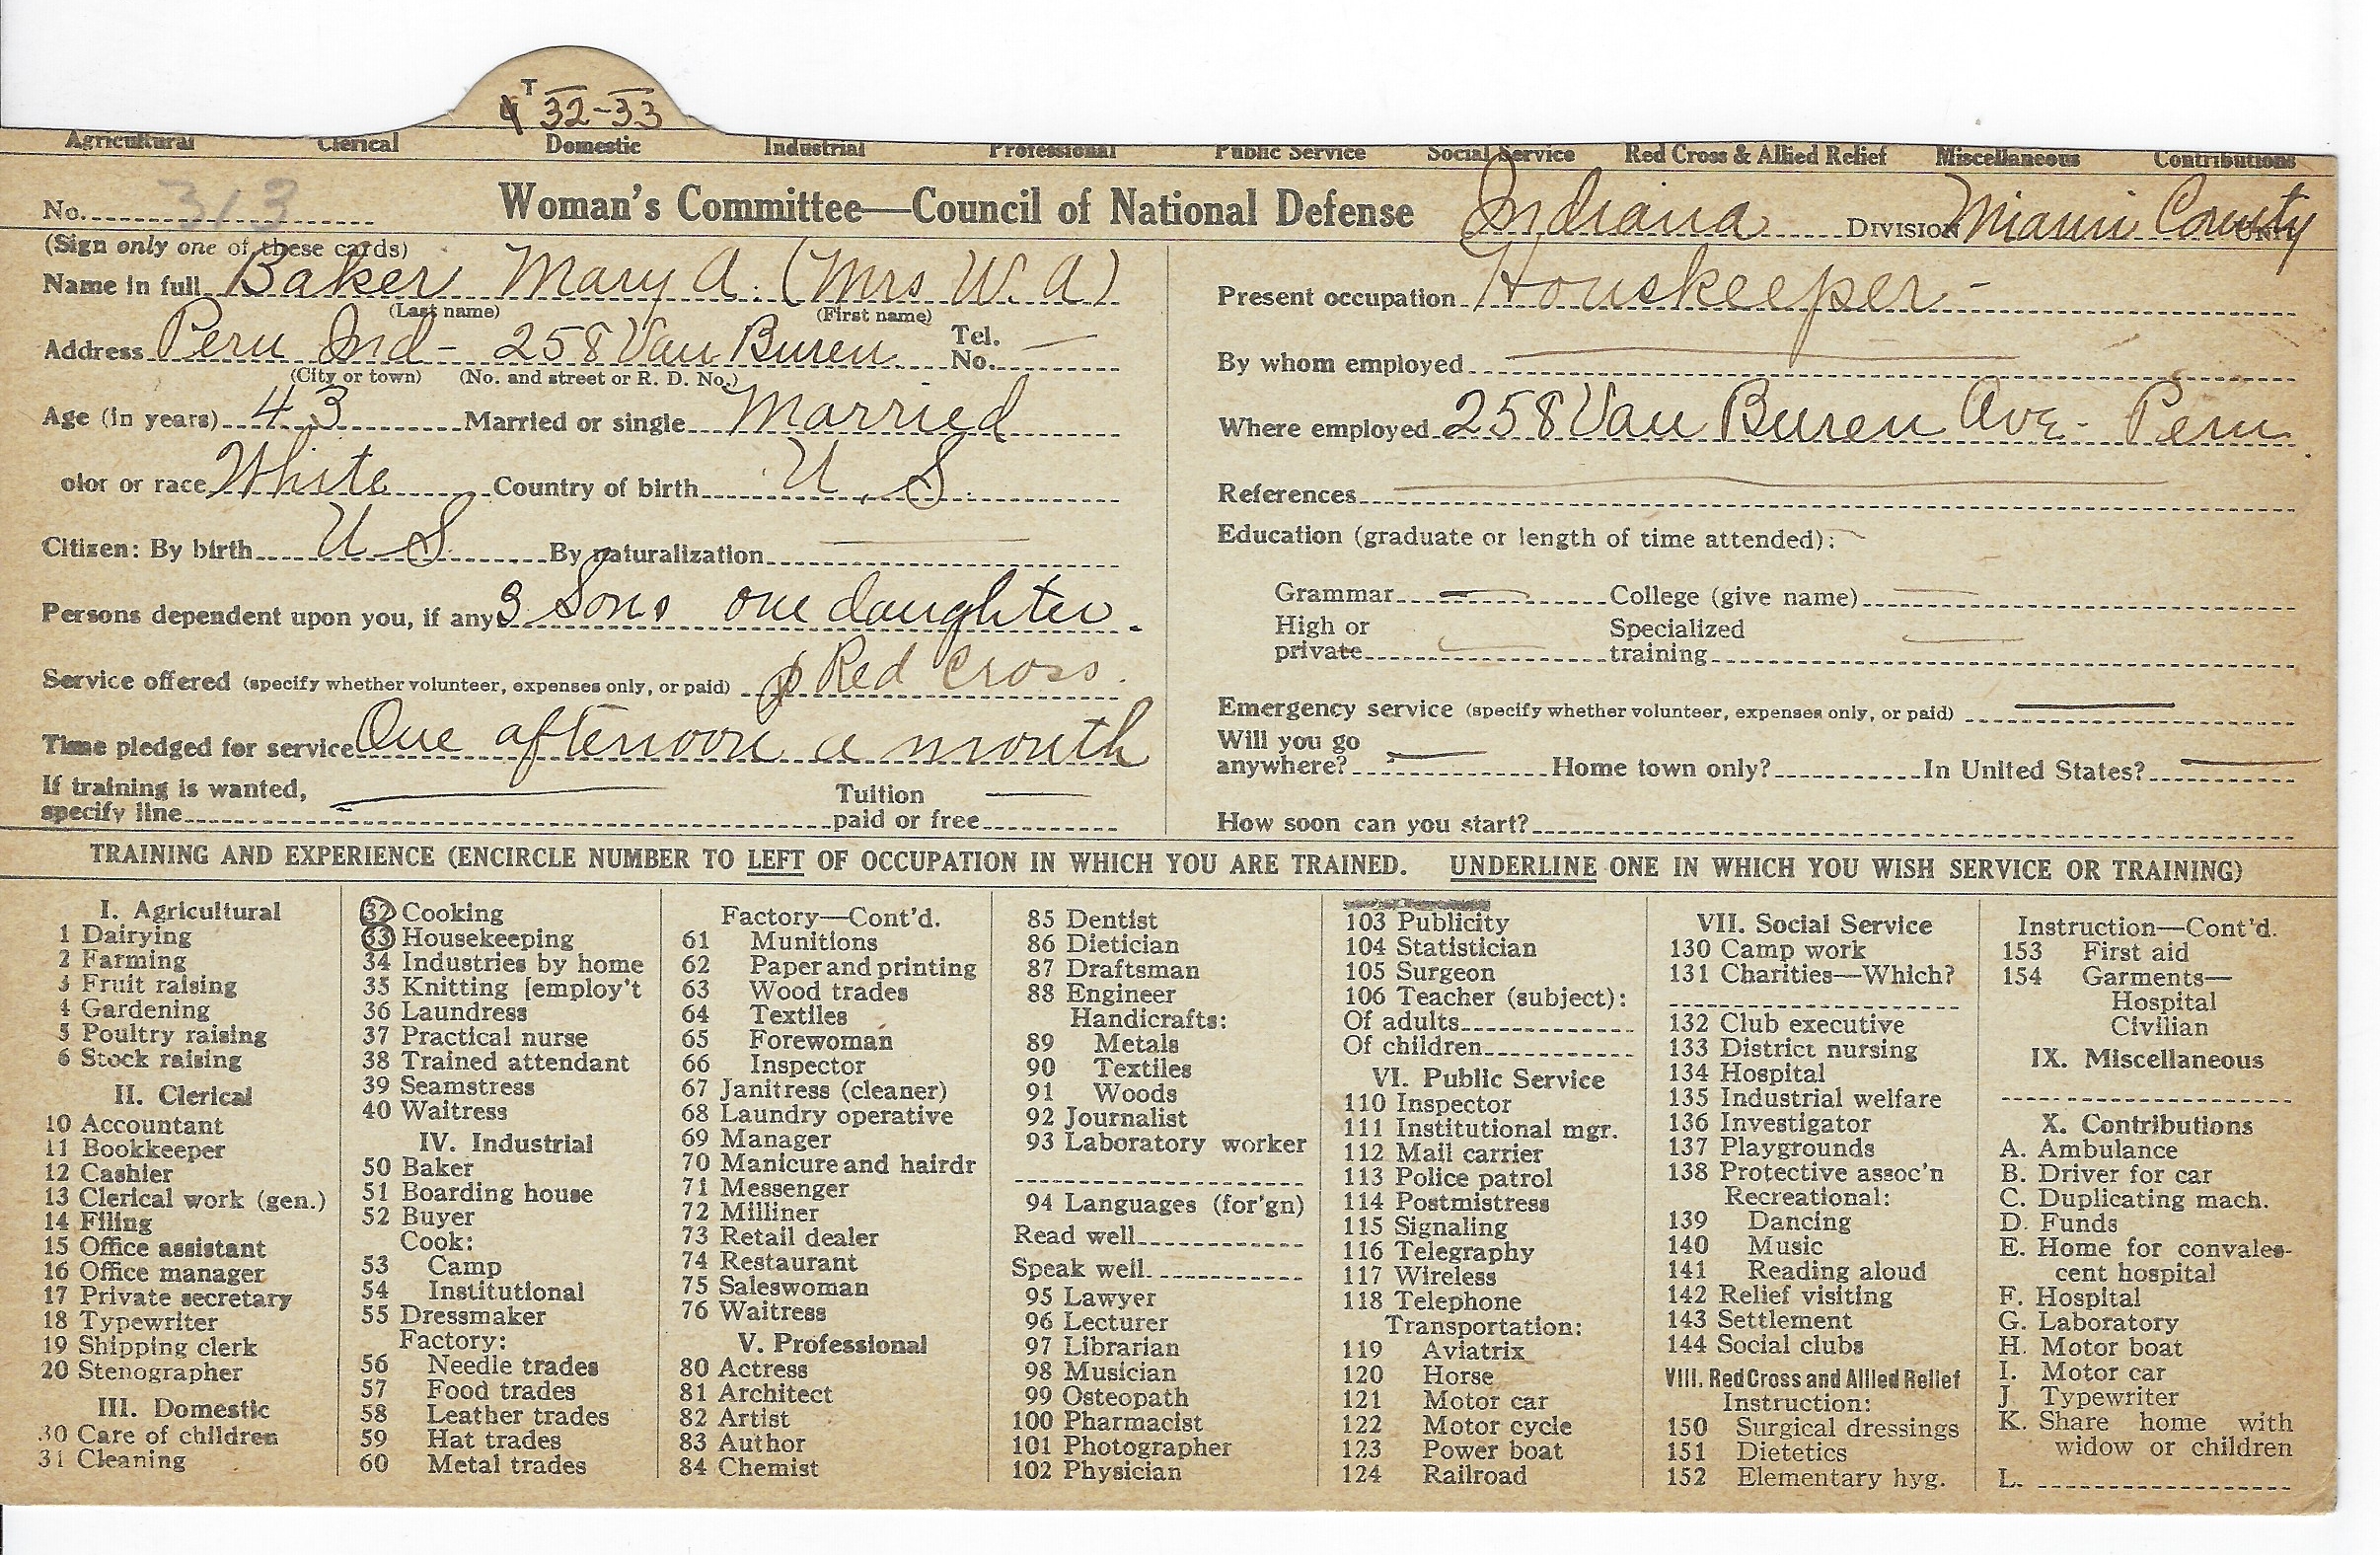 T 32-33
Agricultural Clerical Domestic Industrial Professional Public Service Social Service Red Cross & Allied Relief Miscellaneous Contributions
No. 313 Woman's Committee—Council of National Defense Indiana DIVISION Miami County UNIT
(Sign only one of these cards)
Name in full Baker Mary A. (Mrs W. A)
(Last name) (First name)
Address Peru Ind- 258 Van Buren Tel. No. —
(City or town) (No. and street or R. D. No.)
Age (in years) 43 Married or single Married
olor or race White Country of birth U. S.
Citizen: By birth U S. By naturalization
Persons dependent upon you, if any 3 Sons one daughter.
Service offered (specify whether volunteer, expenses only, or paid) Red Cross.
Time pledged for service One afternoon a month
If training is wanted, specify line Tuition paid or free
Present occupation Houskeeper-
By whom employed
Where employed 258 Van Buren Ave- Peru.
References
Education (graduate or length of time attended):
Grammar College (give name)
High or private Specialized training
Emergency service (specify whether volunteer, expenses only, or paid)
Will you go anywhere? Home town only? In United States?
How soon can you start?
TRAINING AND EXPERIENCE (ENCIRCLE NUMBER TO LEFT OF OCCUPATION IN WHICH YOU ARE TRAINED. UNDERLINE ONE IN WHICH YOU WISH SERVICE OR TRAINING)
I. Agricultural
1 Dairying
2 Farming
3 Fruit raising
4 Gardening
5 Poultry raising
6 Stock raising
II. Clerical
10 Accountant
11 Bookkeeper
12 Cashier
13 Clerical work (gen.)
14 Filing
15 Office assistant
16 Office manager
17 Private secretary
18 Typewriter
19 Shipping clerk
20 Stenographer
III. Domestic
30 Care of children
31 Cleaning
32 Cooking
33 Housekeeping
34 Industries by home
35 Knitting [employ't
36 Laundress
37 Practical nurse
38 Trained attendant
39 Seamstress
40 Waitress
IV. Industrial
50 Baker
51 Boarding house
52 Buyer
Cook:
53 Camp
54 Institutional
55 Dressmaker
Factory:
56 Needle trades
57 Food trades
58 Leather trades
59 Hat trades
60 Metal trades
Factory—Cont'd.
61 Munitions
62 Paper and printing
63 Wood trades
64 Textiles
65 Forewoman
66 Inspector
67 Janitress (cleaner)
68 Laundry operative
69 Manager
70 Manicure and hairdr
71 Messenger
72 Milliner
73 Retail dealer
74 Restaurant
75 Saleswoman
76 Waitress
V. Professional
80 Actress
81 Architect
82 Artist
83 Author
84 Chemist
85 Dentist
86 Dietician
87 Draftsman
88 Engineer
Handicrafts:
89 Metals
90 Textiles
91 Woods
92 Journalist
93 Laboratory worker
94 Languages (for'gn)
Read well
Speak well
95 Lawyer
96 Lecturer
97 Librarian
98 Musician
99 Osteopath
100 Pharmacist
101 Photographer
102 Physician
103 Publicity
104 Statistician
105 Surgeon
106 Teacher (subject):
Of adults
Of children
VI. Public Service
110 Inspector
111 Institutional mgr.
112 Mail carrier
113 Police patrol
114 Postmistress
115 Signaling
116 Telegraphy
117 Wireless
118 Telephone
Transportation:
119 Aviatrix
120 Horse
121 Motor car
122 Motor cycle
123 Power boat
124 Railroad
VII. Social Service
130 Camp work
131 Charities—Which?
132 Club executive
133 District nursing
134 Hospital
135 Industrial welfare
136 Investigator
137 Playgrounds
138 Protective assoc'n
Recreational:
139 Dancing
140 Music
141 Reading aloud
142 Relief visiting
143 Settlement
144 Social clubs
VIII. Red Cross and Allied Relief
Instruction:
150 Surgical dressings
151 Dietetics
152 Elementary hyg.
Instruction—Cont'd.
153 First aid
154 Garments—
Hospital
Civilian
IX. Miscellaneous
X. Contributions
A. Ambulance
B. Driver for car
C. Duplicating mach.
D. Funds
E. Home for convales-
cent hospital
F. Hospital
G. Laboratory
H. Motor boat
I. Motor car
J. Typewriter
K. Share home with
widow or children
L.